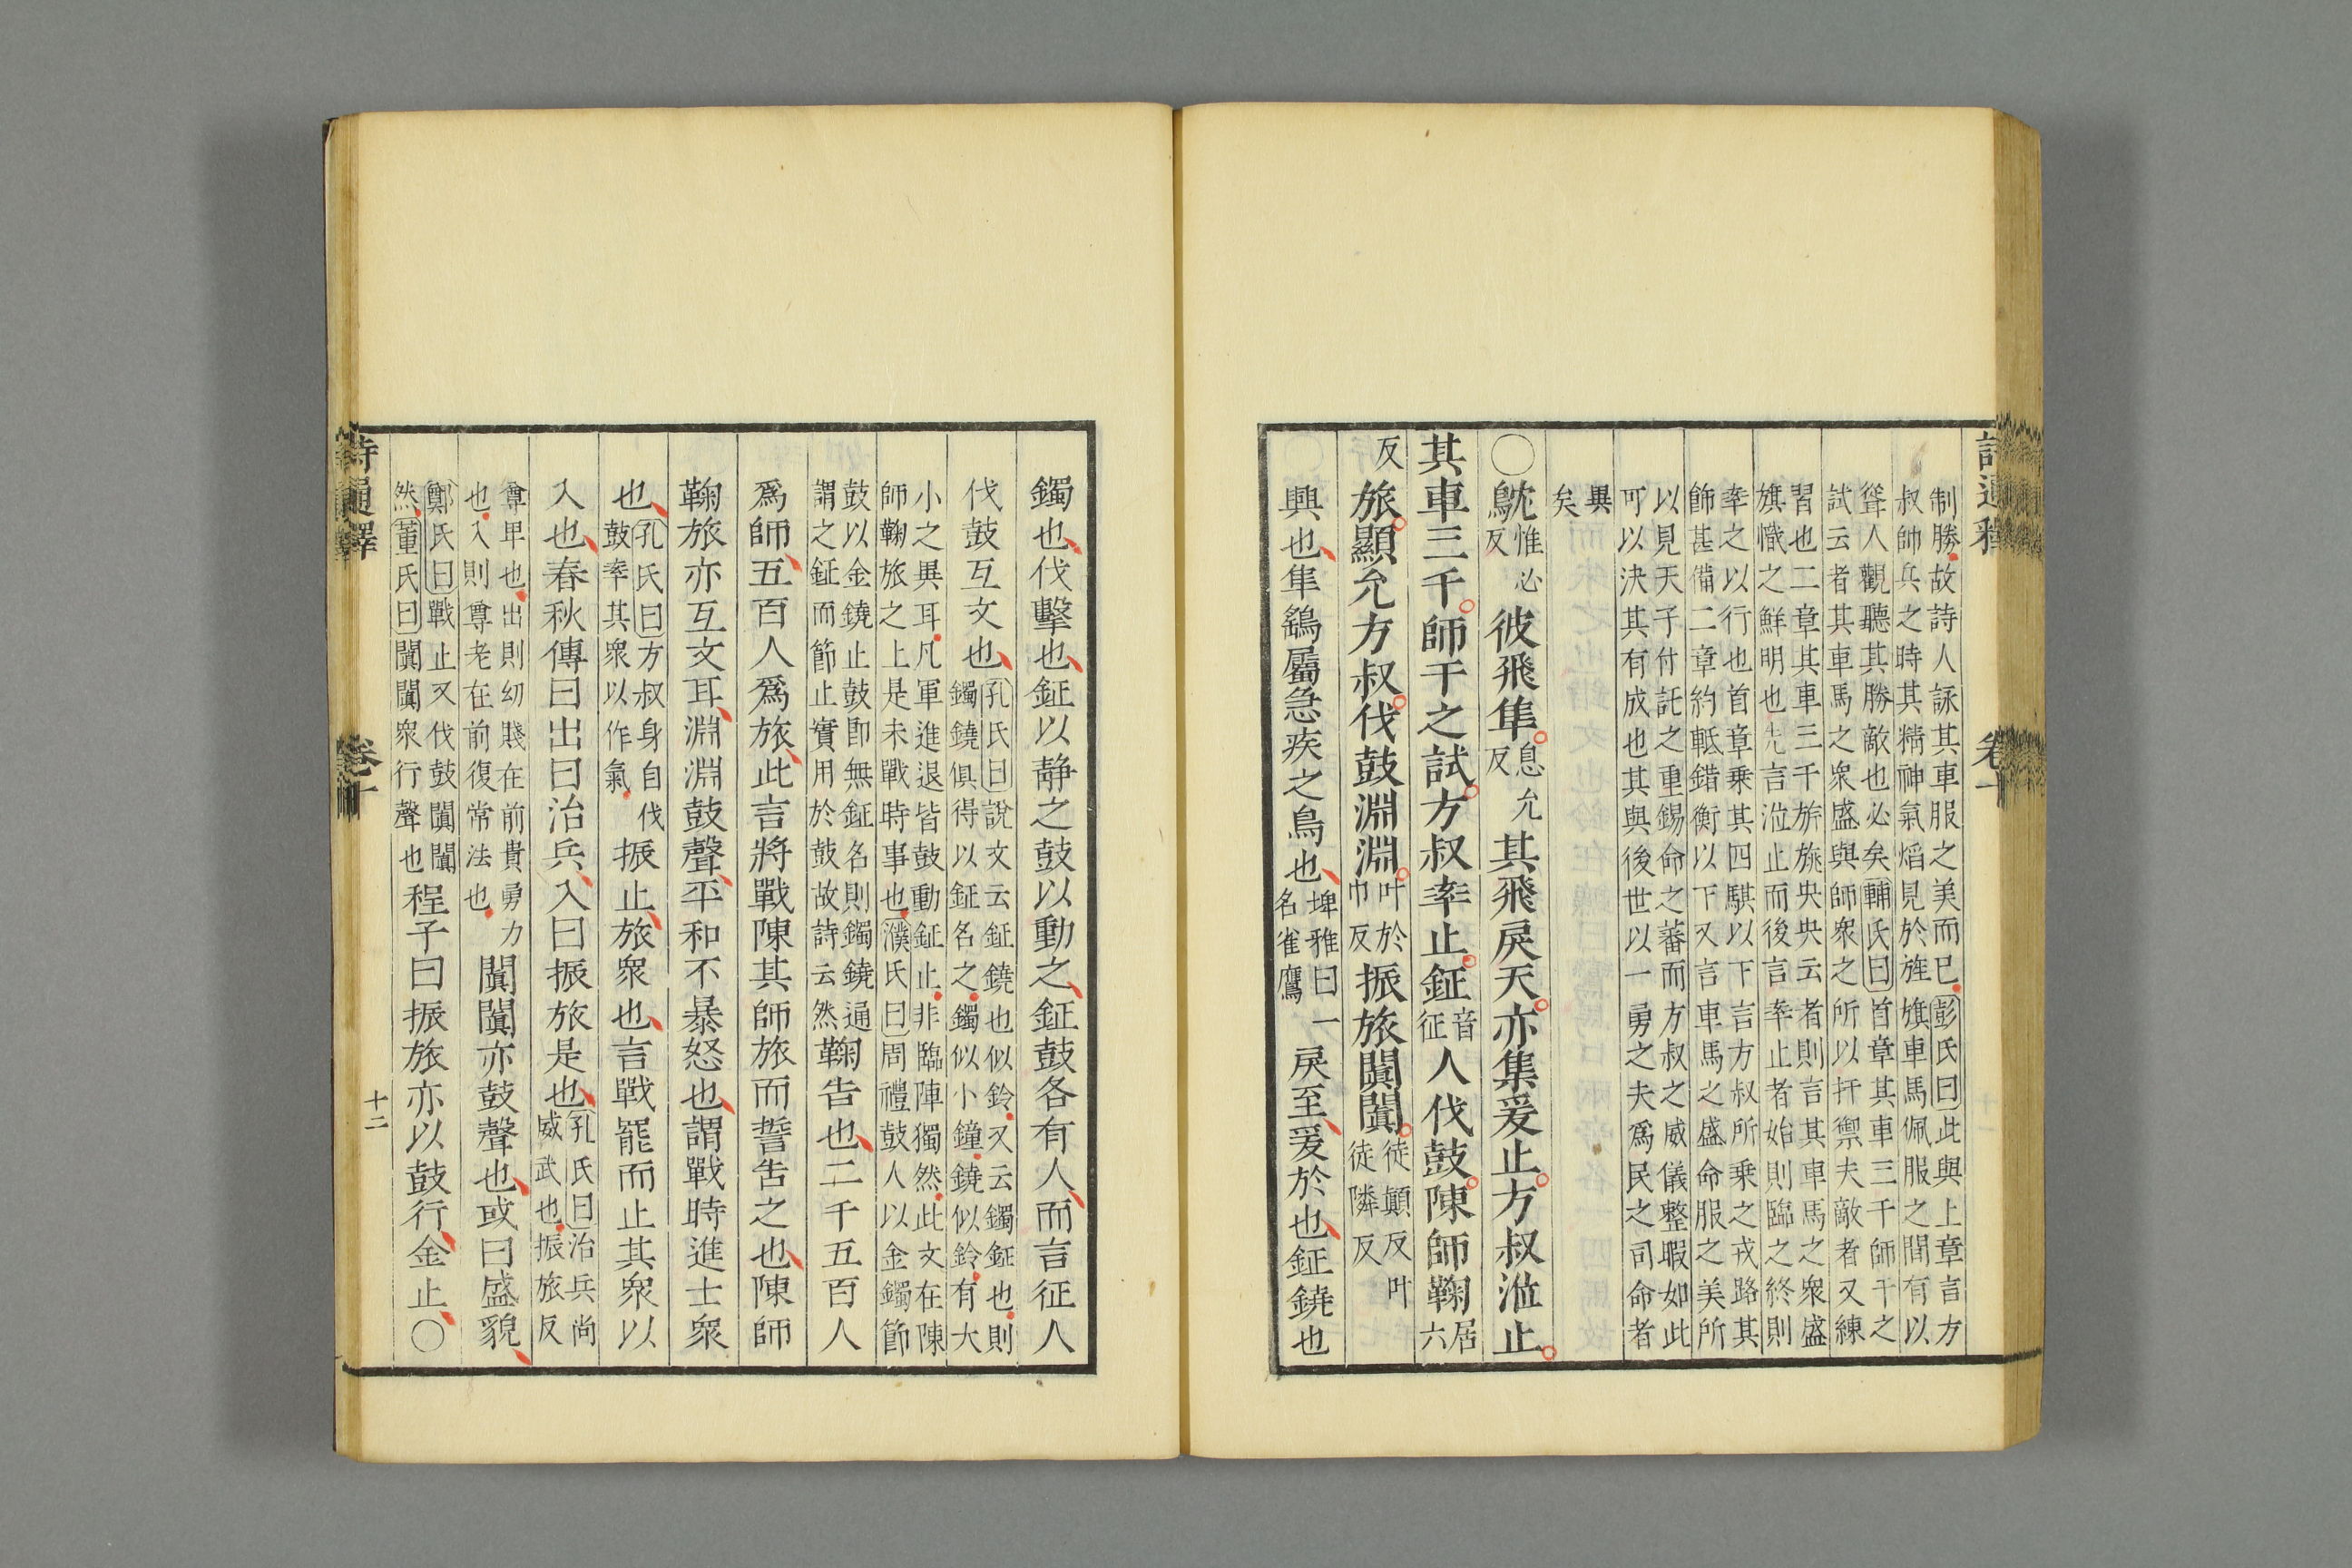 詩通釋 卷十
制勝故詩人詠其車服之美而已彭氏曰此與上章言方
叔帥兵之時其精神氣焰見於旌旗車馬佩服之間有以
聳人觀聽其勝敵也必矣輔氏曰首章其車三千師干之
試云者其車馬之衆盛與師衆之所以扞禦夫敵者又練
習也二章其車三千旂旐央央云者則言其車馬之衆盛
旗幟之鮮明也先言涖止而後言率止者始則臨之終則
率之以行也首章乗其四騏以下言方叔所乗之戎路其
飾甚備二章約軧錯衡以下又言車馬之盛命服之美所
以見天子付託之重錫命之蕃而方叔之威儀整暇如此
可以決其有成也其與後世以一勇之夫爲民之司命者
異
矣
〇鴥惟必反彼飛隼息允反其飛戾天亦集爰止方叔涖止
其車三千師干之試方叔率止鉦音征人伐鼓陳師鞠居六
反旅顯允方叔伐鼓淵淵叶於巾反振旅闐闐徒顛反叶徒隣反
興也隼鷂屬急疾之鳥也埤雅曰一名雀鷹戾至爰於也鉦鐃也
鐲也伐擊也鉦以静之鼓以動之鉦鼓各有人而言征人
伐鼓互文也孔氏曰說文云鉦鐃也似鈴又云鐲鉦也則鐲鐃俱得以鉦名之鐲似小鐘鐃似鈴有大
小之異耳凡軍進退皆鼓動鉦止非臨陣獨然此文在陳
師鞠旅之上是未戰時事也濮氏曰周禮鼓人以金鐲節
鼓以金鐃止鼓即無鉦名則鐲鐃通謂之鉦而節止實用於鼓故詩云然鞠告也二千五百人
爲師五百人爲旅此言將戰陳其師旅而誓告之也陳師
鞠旅亦互文耳淵淵鼓聲平和不暴怒也謂戰時進士衆
也孔氏曰方叔身自伐鼓率其衆以作氣振止旅衆也言戰罷而止其衆以
入也春秋傳曰出曰治兵入曰振旅是也孔氏曰治兵尚威武也振旅反
尊卑也出則幼賤在前貴勇力也入則尊老在前復常法也闐闐亦鼓聲也或曰盛貌
鄭氏曰戰止又伐鼓闐闐然董氏曰闐闐衆行聲也程子曰振旅亦以鼓行金止〇
詩通釋 卷十 十二